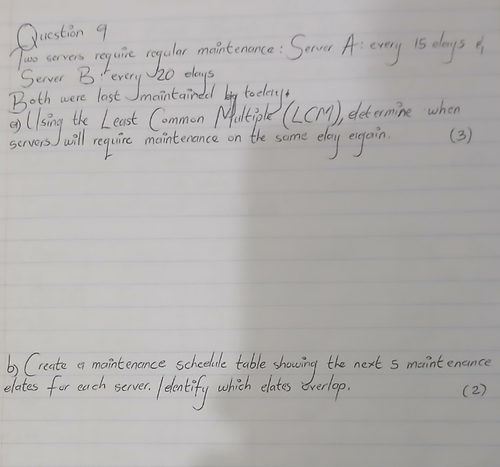 Question 9
Two servers require regular maintenance: Server A: every 15 days &
Server B: every 20 days
Both were last maintained by today.
a) Using the Least Common Multiple (LCM), determine when
servers will require maintenance on the same day again. (3)
b) Create a maintenance schedule table showing the next 5 maintenance
dates for each server. Identify which dates overlap. (2)